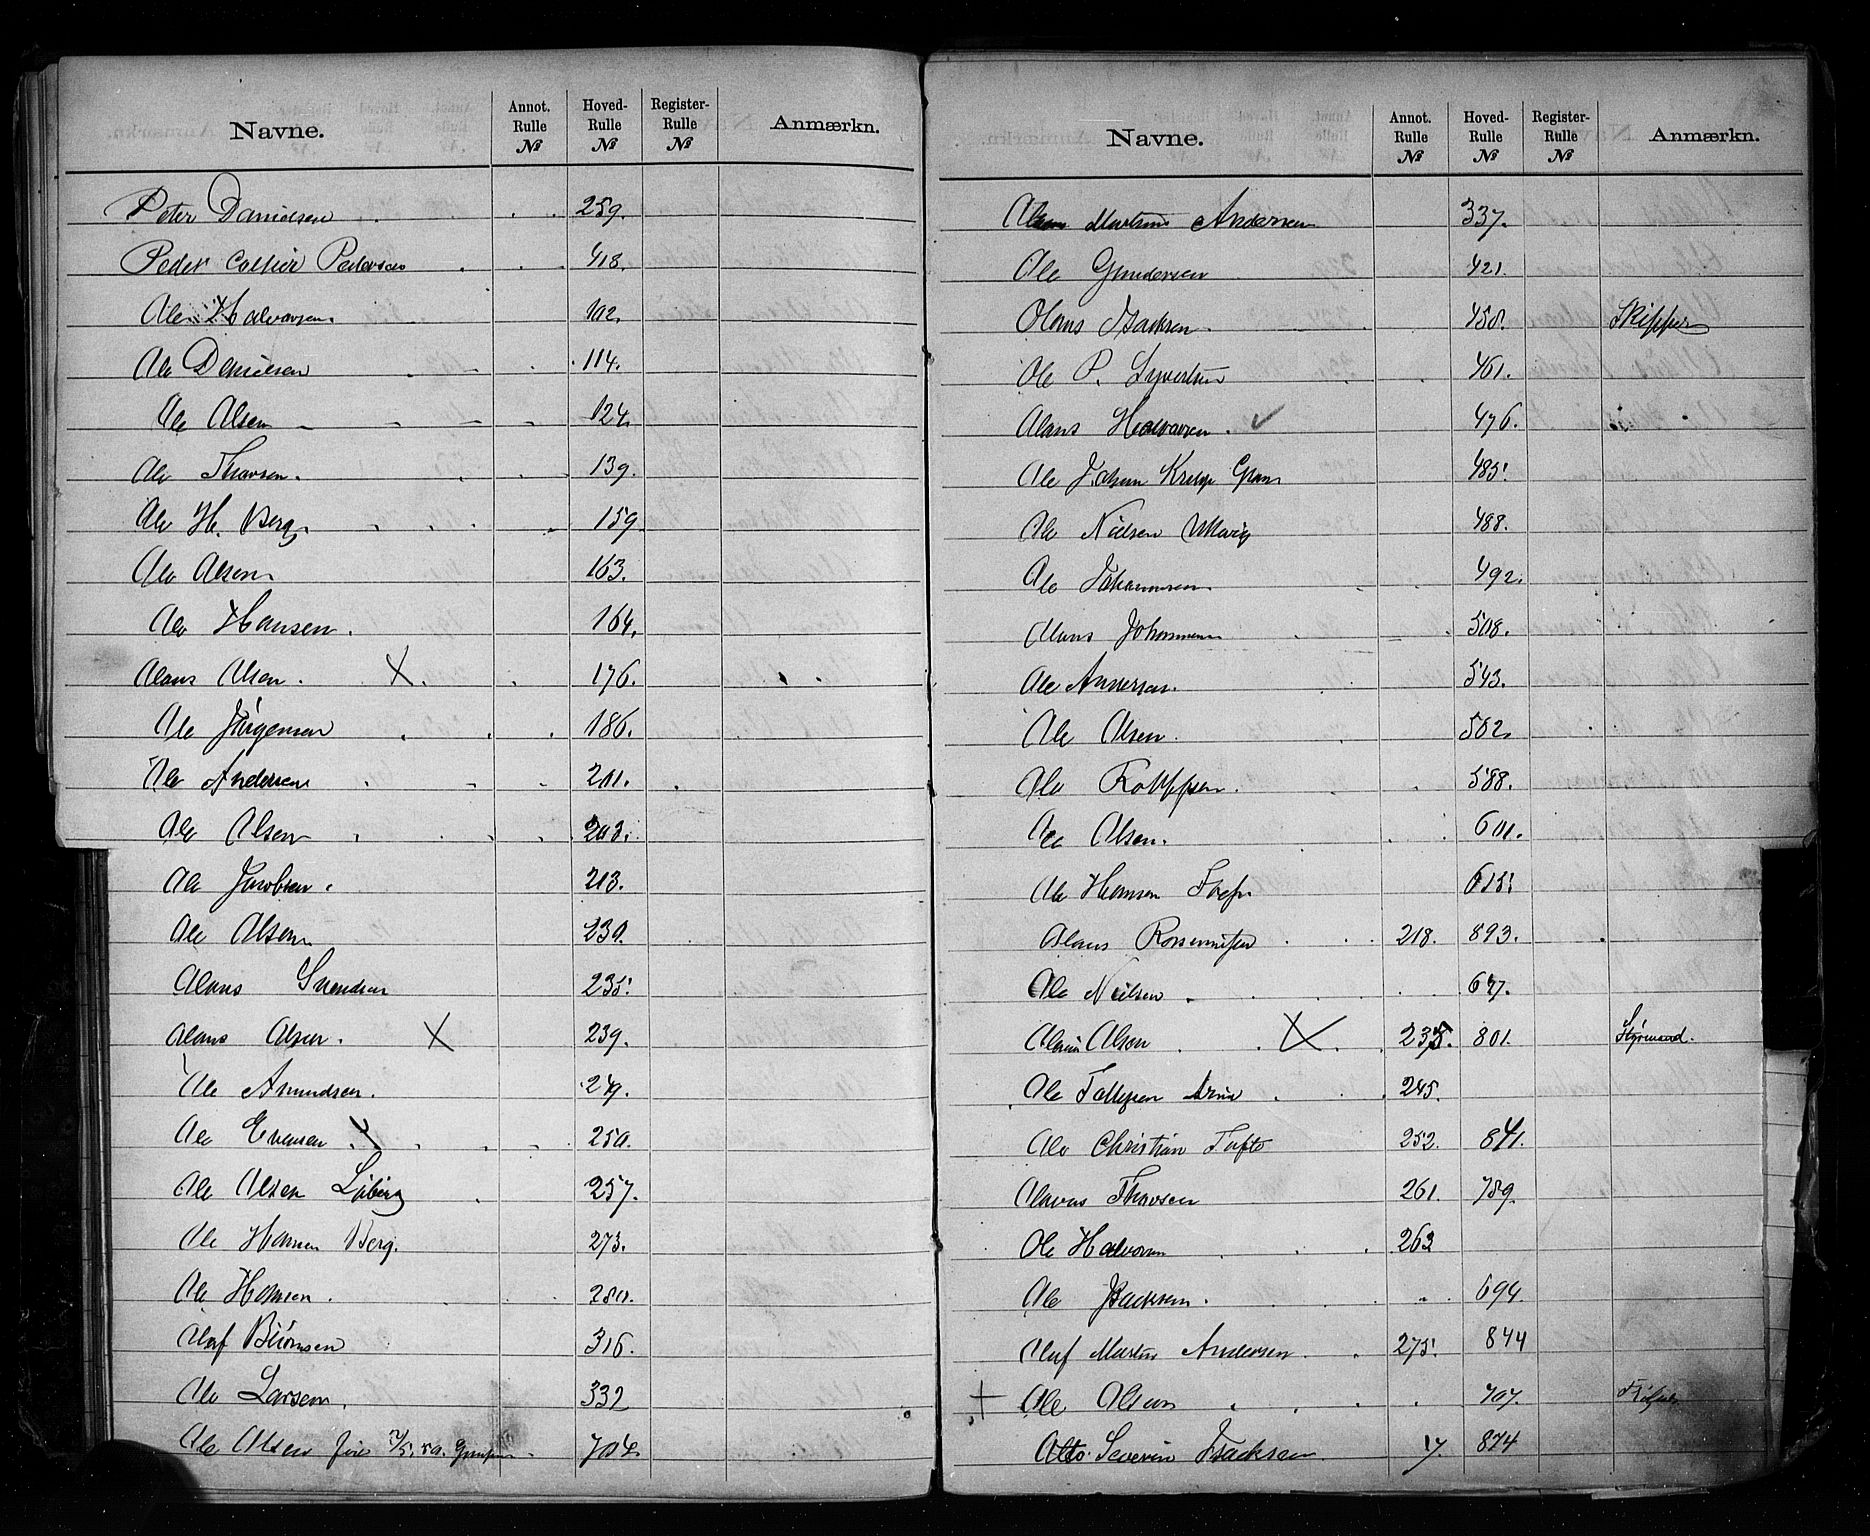 Navne. Annot. Rulle № Hoved- Rulle № Register- Rulle № Anmærkn.
Peter Danielsen 259.
Peder Collier Pedersen 418.
Ole Halvorsen. 102.
Ole Danielsen 114.
Ole Olsen 124.
Ole Thorsen. 139.
Ole H. Berg. 159.
Ole Olsen 163.
Ole Hansen. 164.
Olaus Olsen. X. 176.
Ole Jörgensen 186.
Ole Andersen 201.
Ole Olsen 203.
Ole Jacobsen. 213.
Ole Olsen 230.
Olaus Svendsen 235.
Olaus Olsen. X 239.
Ole Amundsen. 249.
Ole Evensen 250.
Ole Olsen 257.
Ole Hansen Berg. 273.
Ole Hansen. 280.
Oluf Biörnsen 316.
Ole Larsen. 332
Ole Olsen 704.
Navne. Annot. Rulle № Hoved- Rulle № Register- Rulle № Anmærkn.
Martinus Andersen 337.
Ole Gundersen 421.
Olaus Isaksen 458. Skipper
Ole P. Syvertsen 461.
Olaus Halvorsen. ✓ 476.
Ole Johan Gran 485.
Ole Nielsen 488.
Ole Johannesen 492.
Olaus Johannesen 508.
Ole Andersen. 543.
Ole Olsen. 562.
Ole 588.
Ole Olsen. 601.
Ole Hansen 615.
Olaus 218. 893.
Ole Nielsen 647.
Olsen X. 235. 801. Styrmand.
Ole 245.
Ole Christian Tufte 252. 841.
Thorsen 261. 789.
Ole Halvorsen 263
Ole Isaksen. 694.
Oluf Martin Andersen. 275. 844
+ Ole Olsen 707.
Otto Severin Isacksen 17. 874